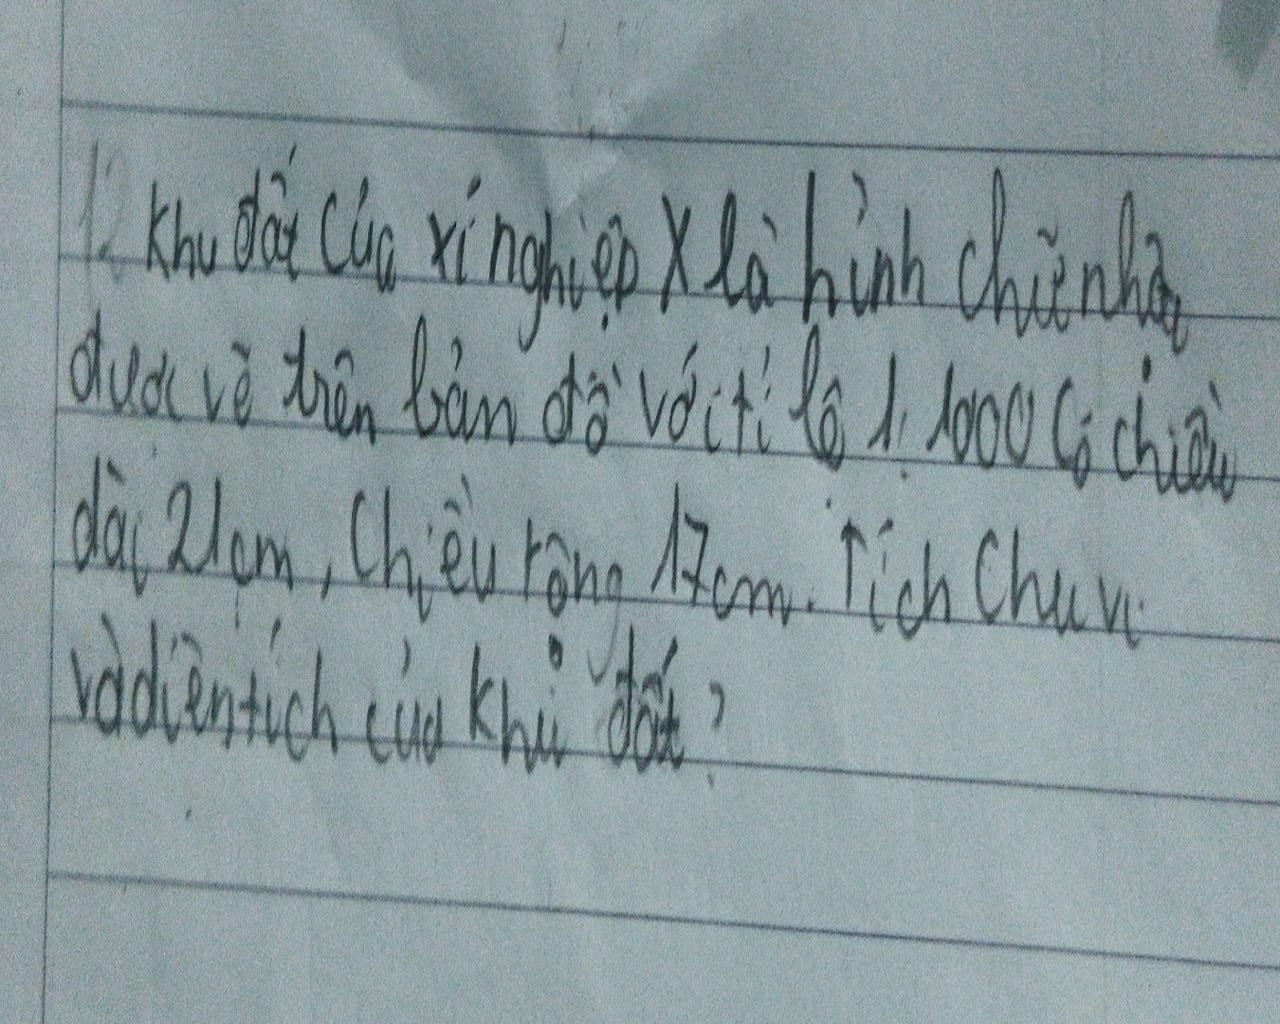 12 Khu đất của xí nghiệp X là hình chữ nhậ
được vẽ trên bản đồ với tỉ lệ 1:1000 Có chiều
dài 21cm, Chiều rộng 17cm. Tích Chu vi
và diện tích của khu đất?